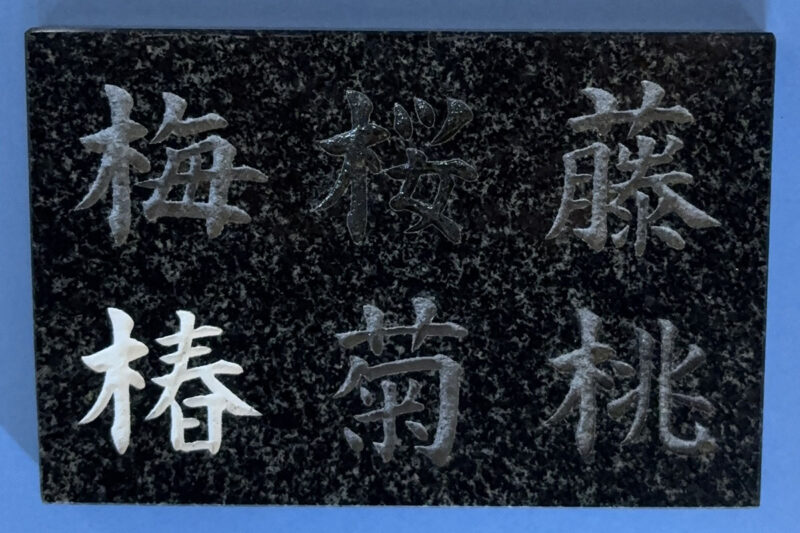 梅桜藤
椿菊桃